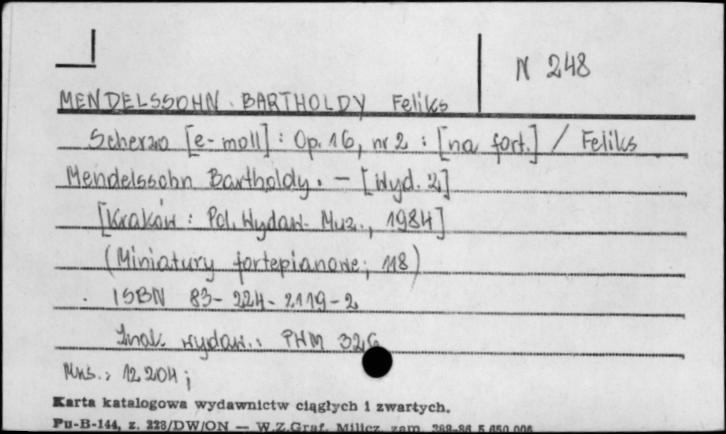 N 248
MENDELSSOHN BARTHOLDY Feliks
Scherzo [e-moll] : Op. 16, nr 2 : [na fort.] / Feliks
Mendelssohn Bartholdy. - [Wyd. 2]
[Kraków : Pol. Wydaw. Muz., 1984]
(Miniatury fortepianowe; 118)
ISBN 83-224-2119-2
Znak wydaw.: PWM 326
Mus.: 12204;
Karta katalogowa wydawnictw ciągłych i zwartych.
Pu-B-144, z. 228/DW/ON — W.Z.Graf. Milicz, zam.